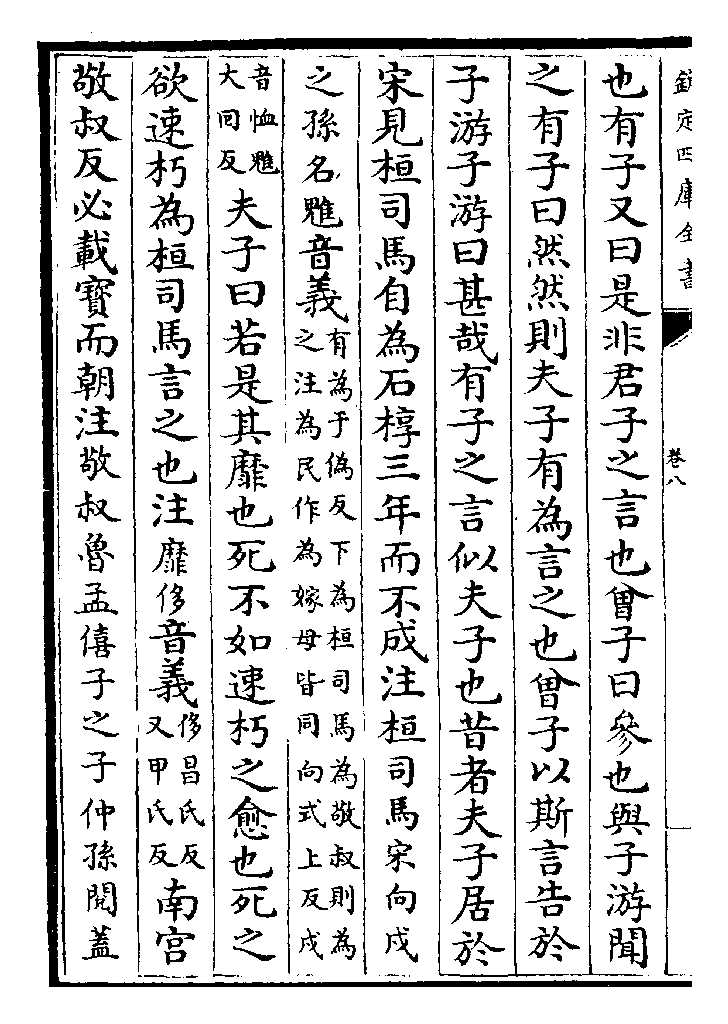 欽定四庫全書
卷八
也有子又曰是非君子之言也曾子曰參也與子游聞
之有子曰然然則夫子有為言之也曾子以斯言告於
子游子游曰甚哉有子之言似夫子也昔者夫子居於
宋見桓司馬自為石椁三年而不成注桓司馬宋向戌
之孫名魋音義有為于偽反下為桓司馬為敬叔則為之注為民作為嫁母皆同向式上反戌
音恤魋大回反夫子曰若是其靡也死不如速朽之愈也死之
欲速朽為桓司馬言之也注靡侈音義侈昌氏反又甲氏反南宫
敬叔反必載寶而朝注敬叔魯孟僖子之子仲孫閱蓋